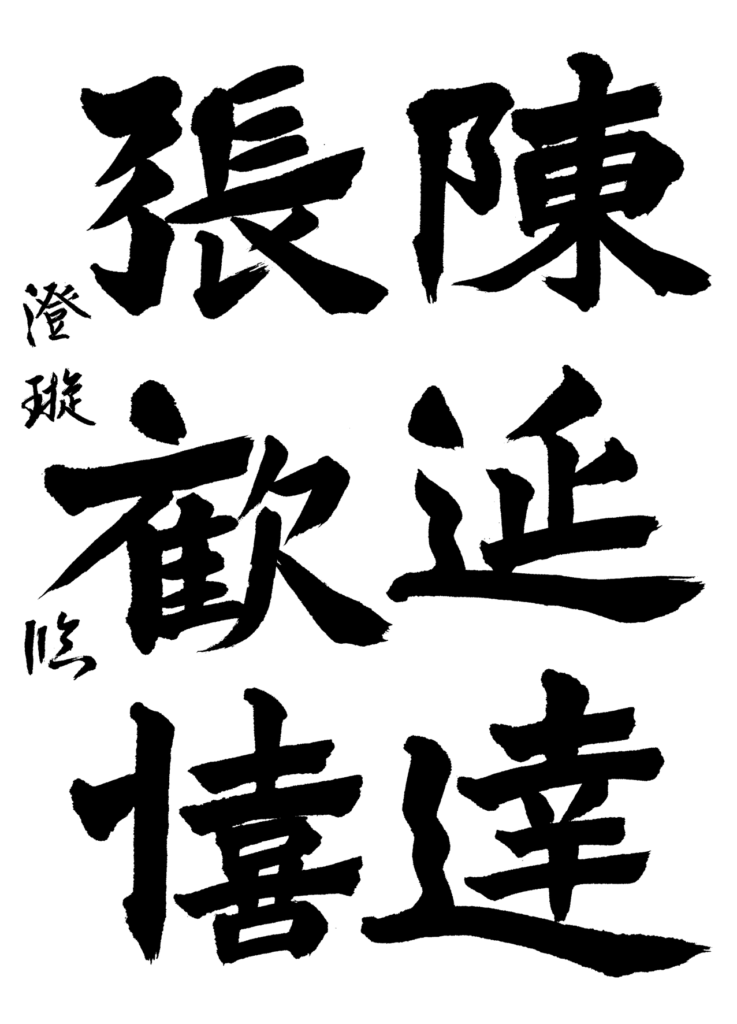 陳延達
張歡憘
澄璇臨